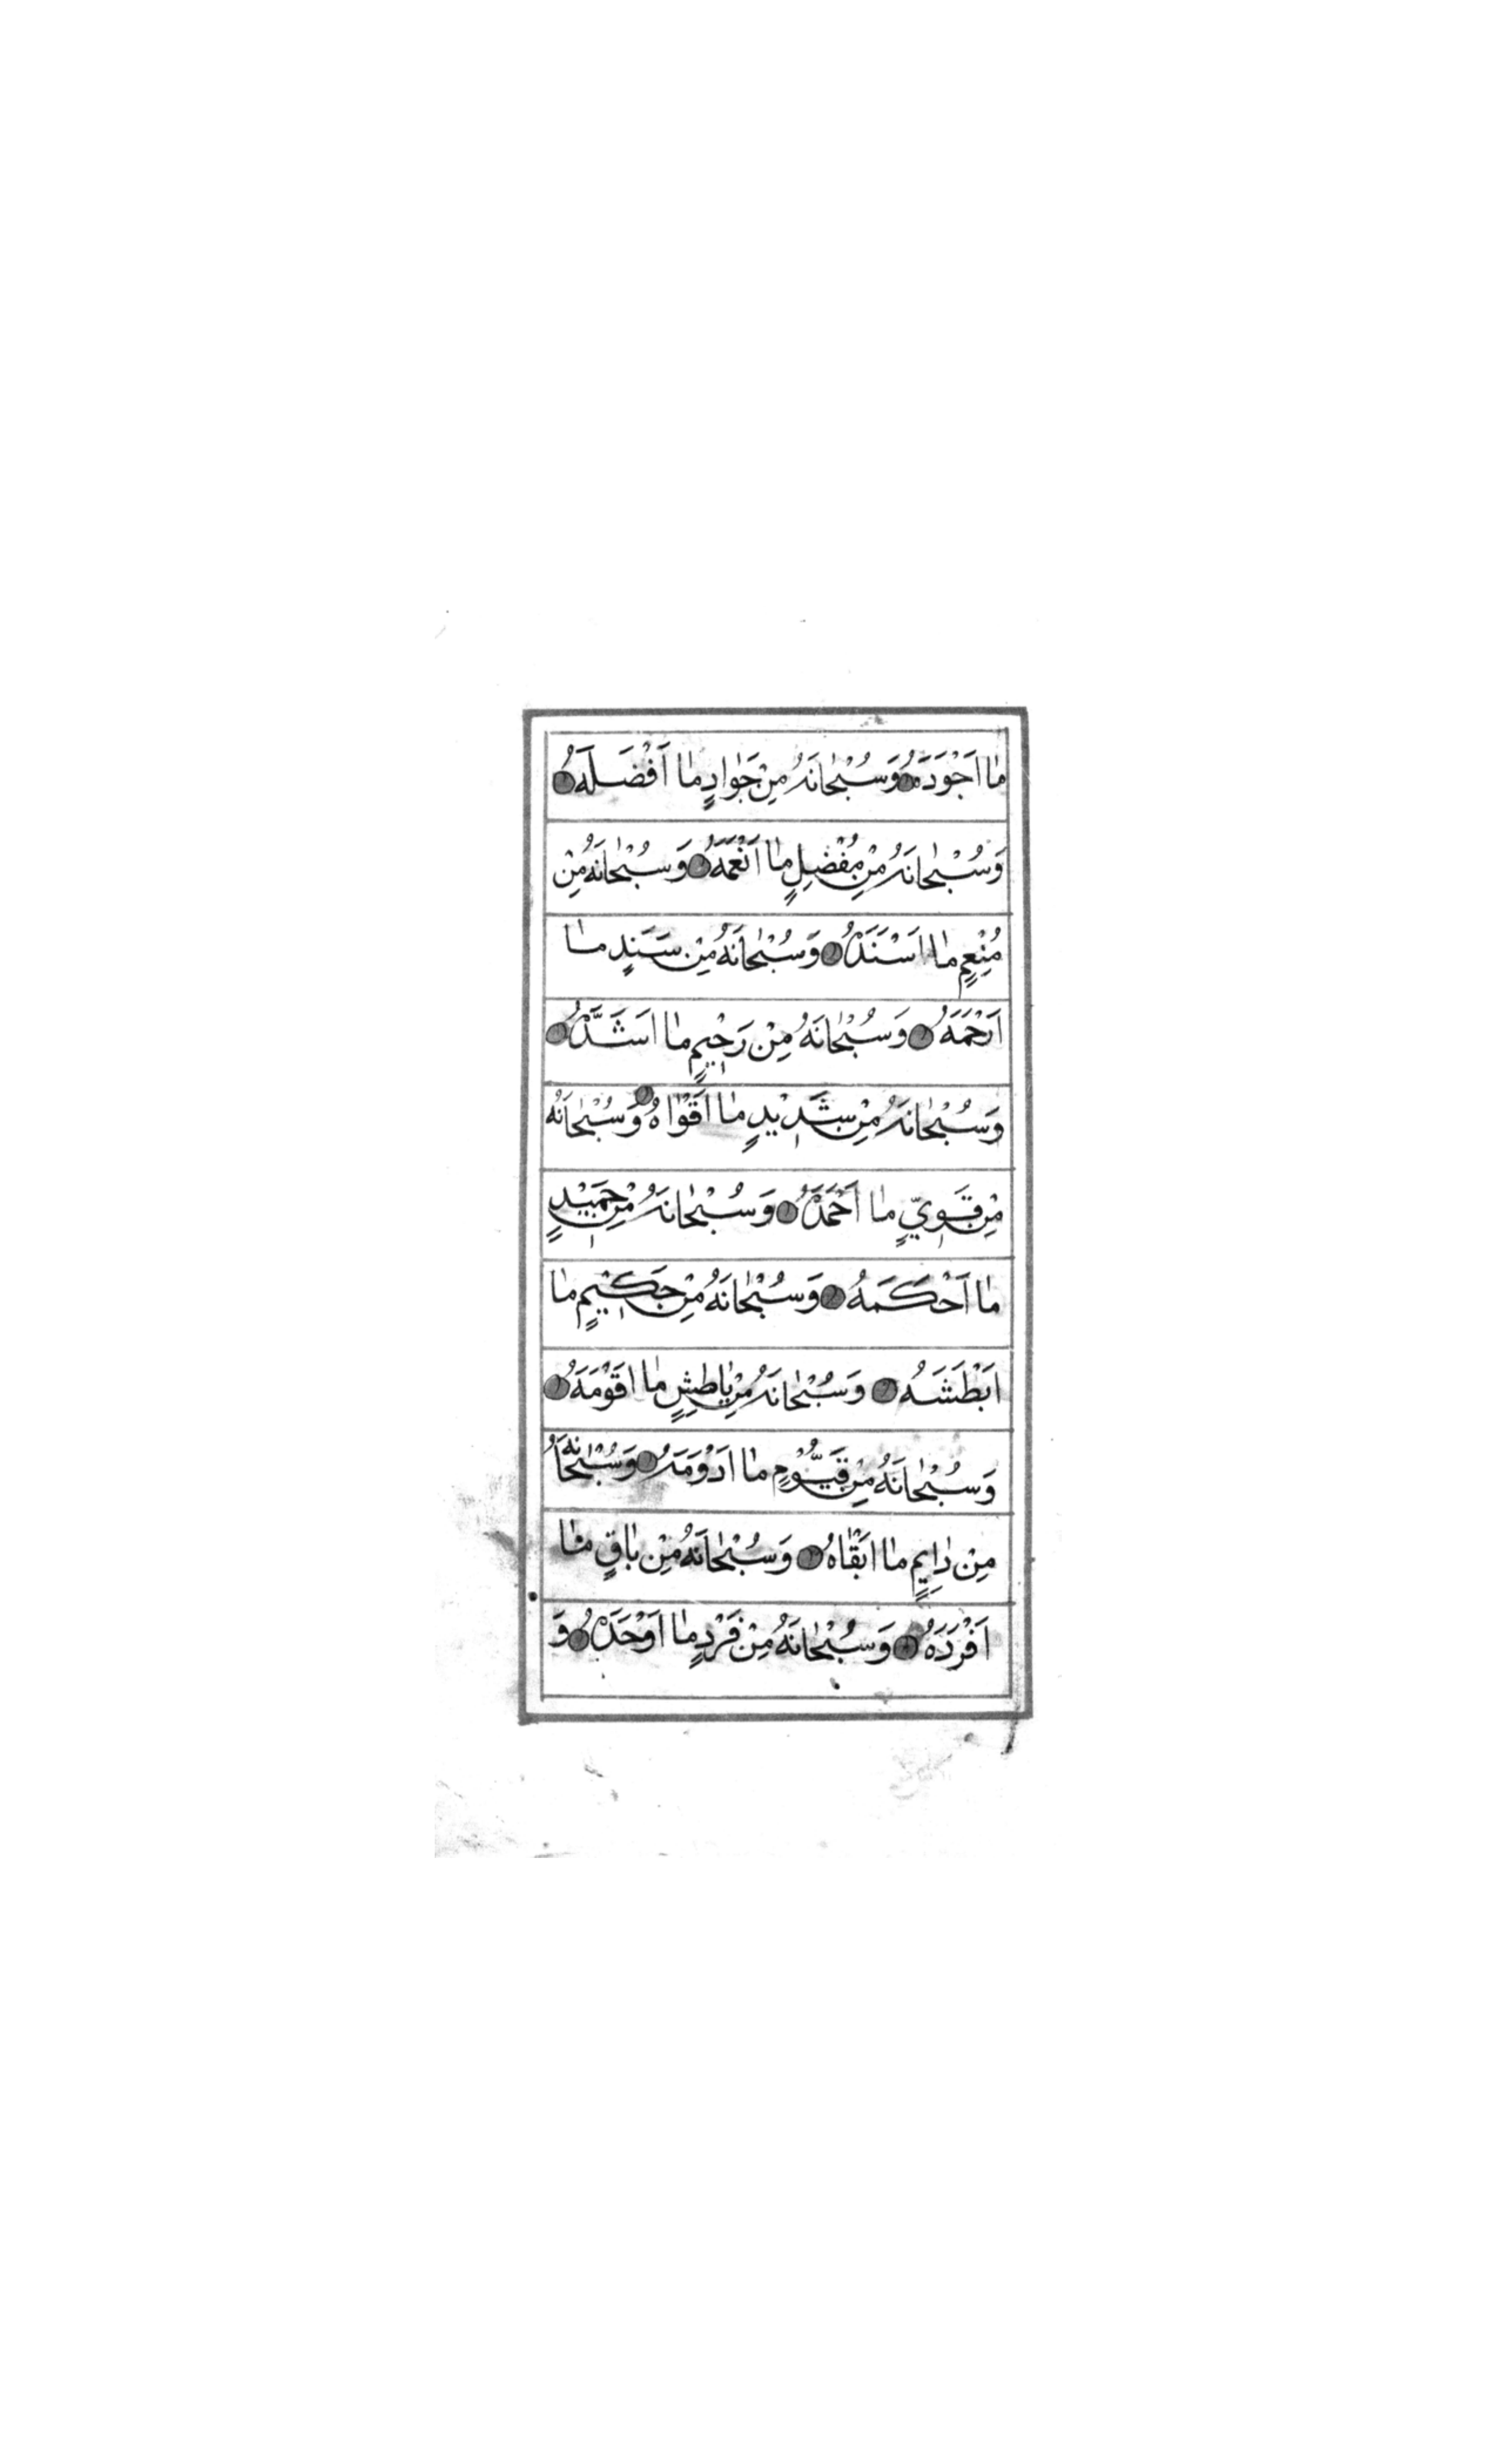 مٰا اَجْوَدَهُ وَسُبْحٰانَهُ مِنْ جَوٰادٍ مٰا اَفْضَلَهُ
وَسُبْحٰانَهُ مِنْ مُفْضِلٍ مٰا اَنْعَمَهُ وَسُبْحٰانَهُ مِنْ
مُنْعِمٍ مٰا اَسْنَدَهُ وَسُبْحٰانَهُ مِنْ سَنَدٍ مٰا
اَرْحَمَهُ وَسُبْحٰانَهُ مِنْ رَحِيمٍ مٰا اَشَدَّهُ
وَسُبْحٰانَهُ مِنْ شَدِيْدٍ مٰا اَقْوٰاهُ وَسُبْحٰانَهُ
مِنْ قَوِيٍّ مٰا اَحْمَدَهُ وَسُبْحٰانَهُ مِنْ حَمِيْدٍ
مٰا اَحْكَمَهُ وَسُبْحٰانَهُ مِنْ حَكِيْمٍ مٰا
اَبْطَشَهُ وَسُبْحٰانَهُ مِنْ بٰاطِشٍ مٰا اَقْوَمَهُ
وَسُبْحٰانَهُ مِنْ قَيُّوْمٍ مٰا اَدْوَمَهُ وَسُبْحٰانَهُ
مِنْ دٰايِمٍ مٰا اَبْقٰاهُ وَسُبْحٰانَهُ مِنْ بٰاقٍ مٰا
اَفْرَدَهُ وَسُبْحٰانَهُ مِنْ فَرْدٍ مٰا اَوْحَدَهُ وَ